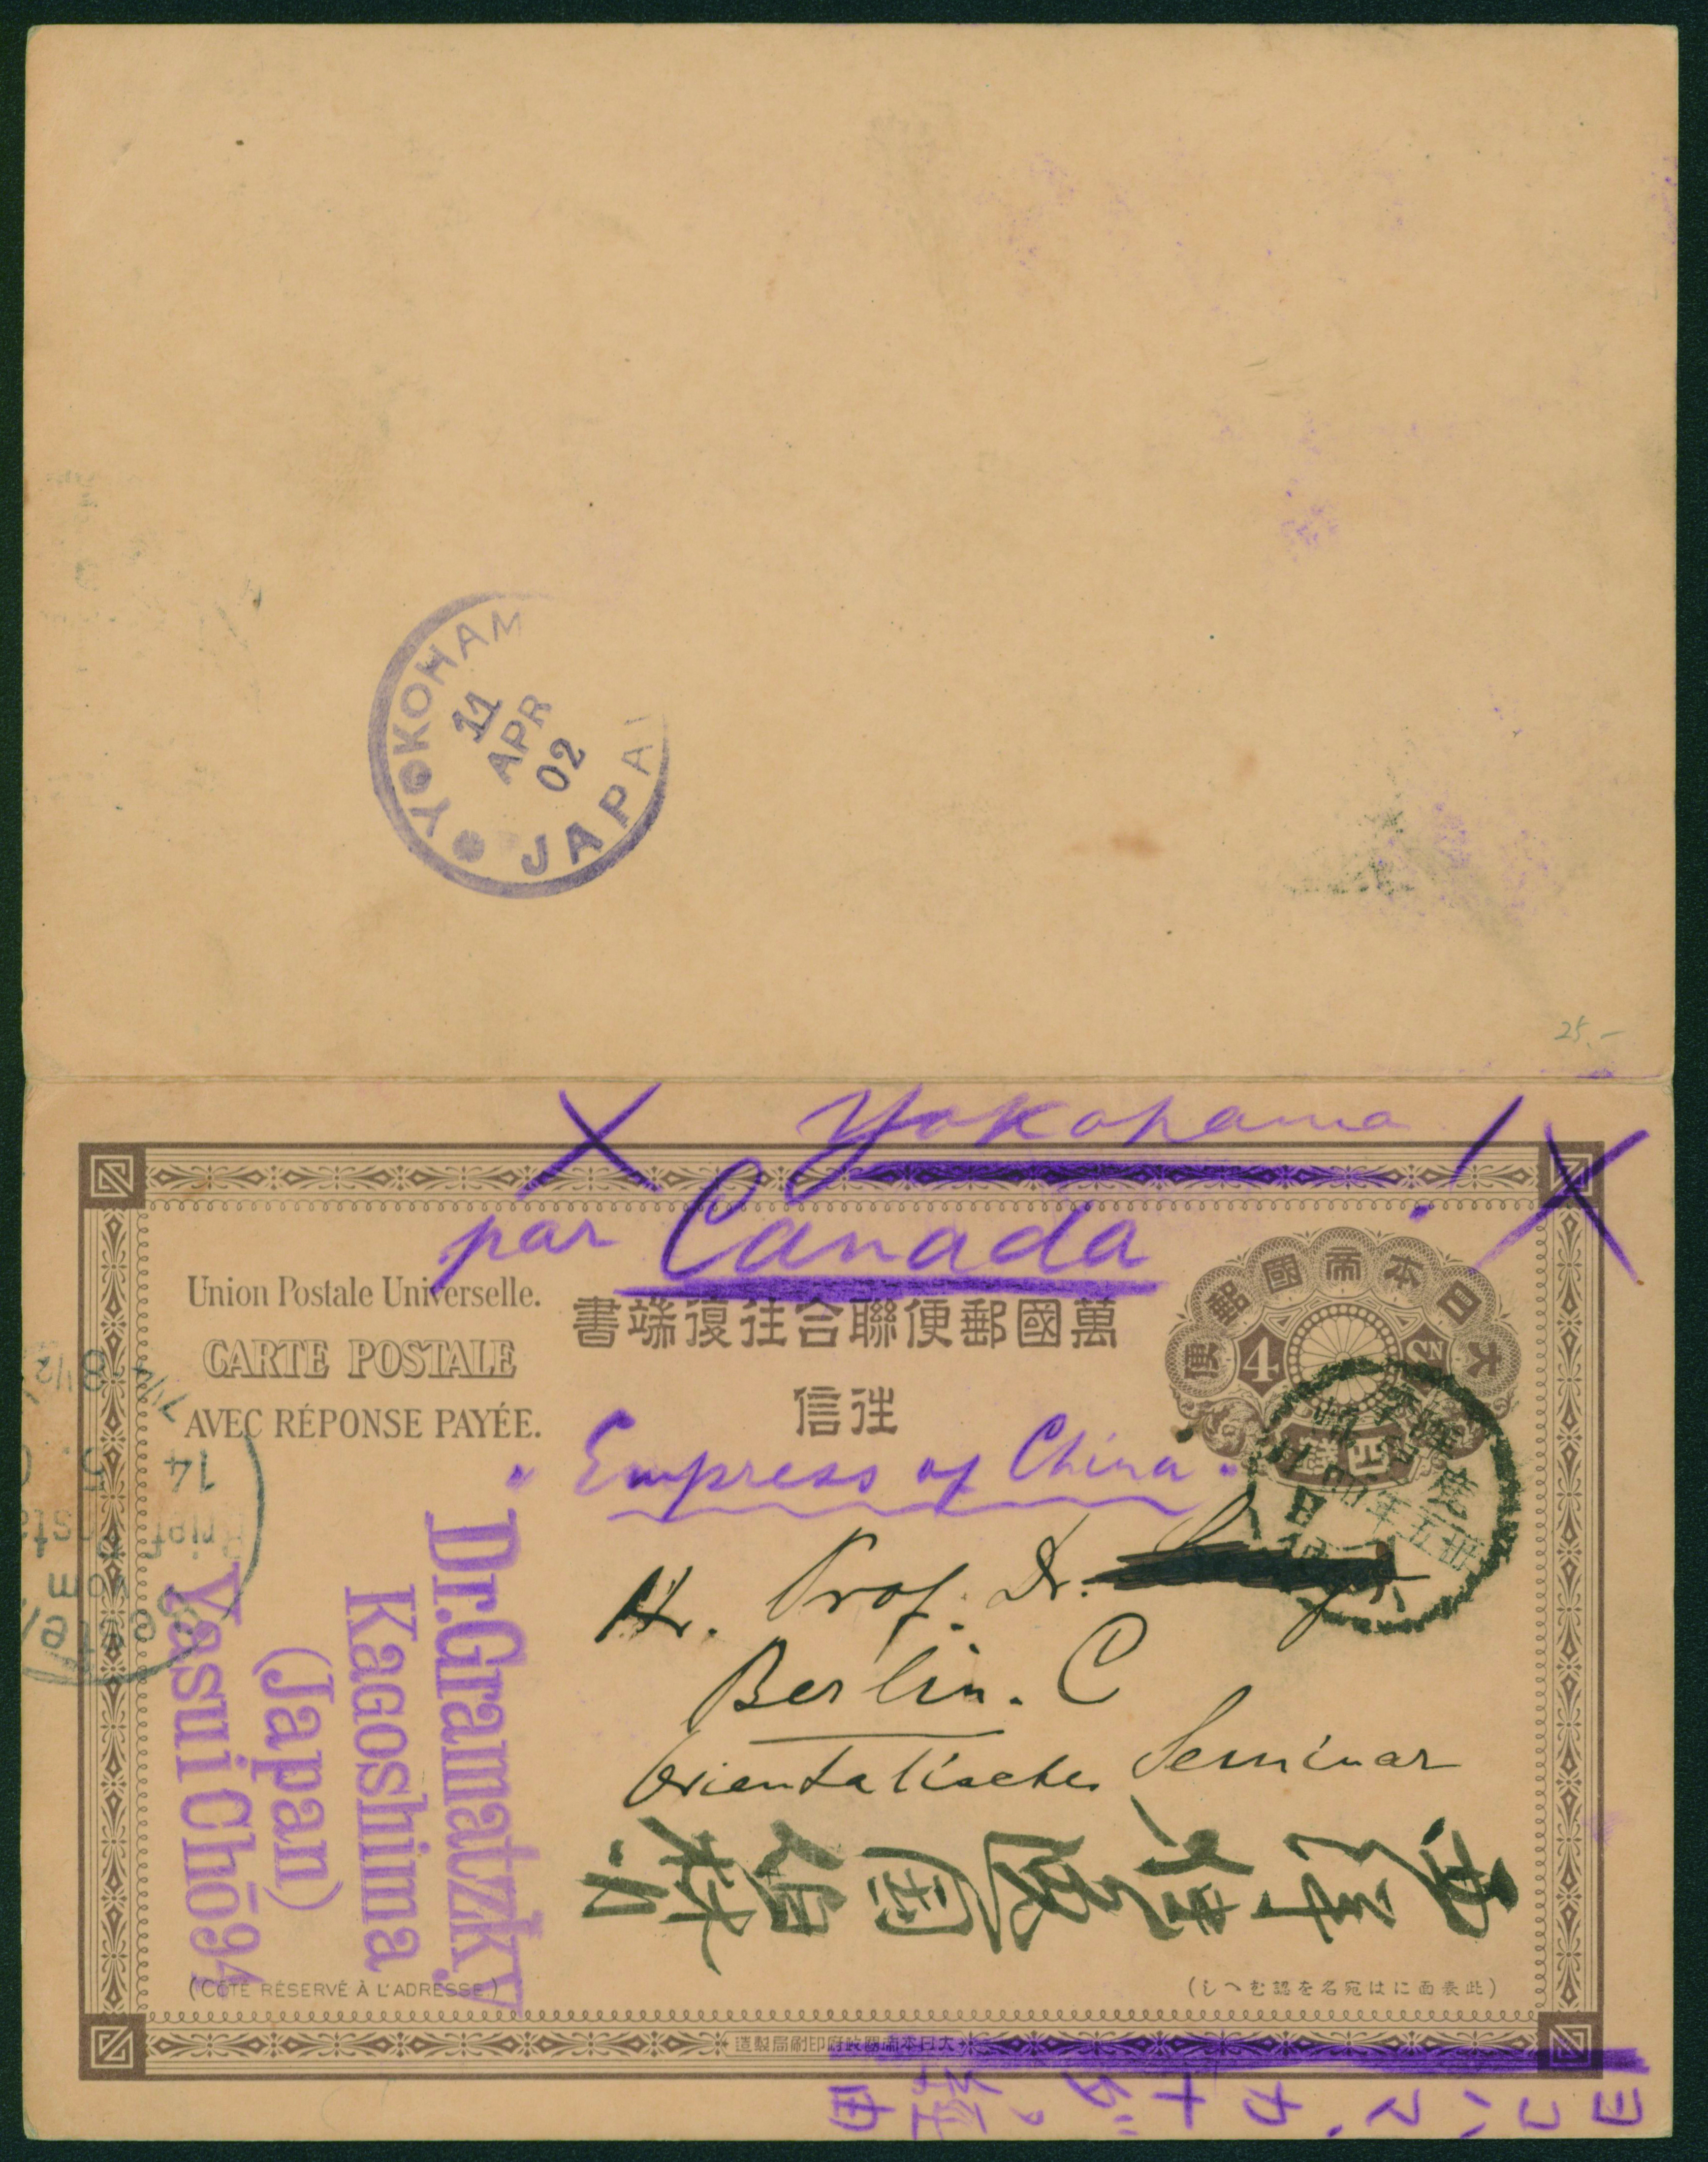 YOKOHAM
11
APR
02
JAPA
25.-
Yokohama!
par Canada
Union Postale Universelle.
CARTE POSTALE
AVEC RÉPONSE PAYÉE.
書端復往合聯便郵國萬
信往
便郵國帝本日大
4 SN
錢四
"Empress of China"
H. Prof. Dr.
Berlin. C
Orientalisches Seminar
Dr. Gramatzky
Kagoshima
(Japan)
Yasui Chō 94
14 5.
(CÔTÉ RÉSERVÉ À L'ADRESSE)
(しへむ認を名宛はに面表此)
造製局刷印府政國帝本日大
ヨコハマ、カナダ。経由